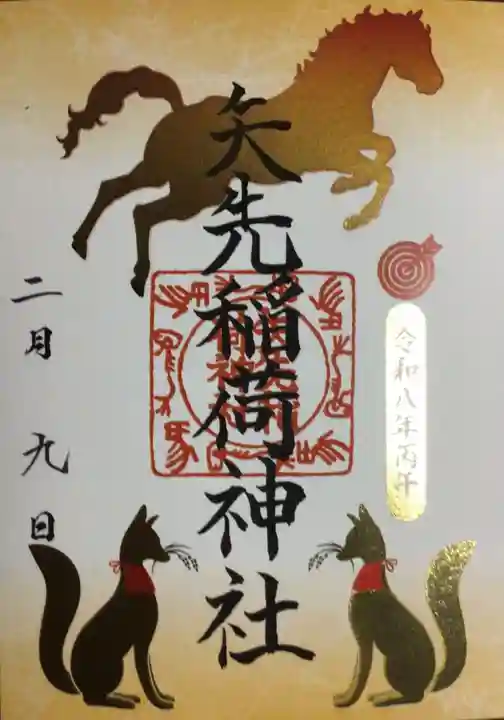 令和八年丙午
矢先稲荷神社
二月九日